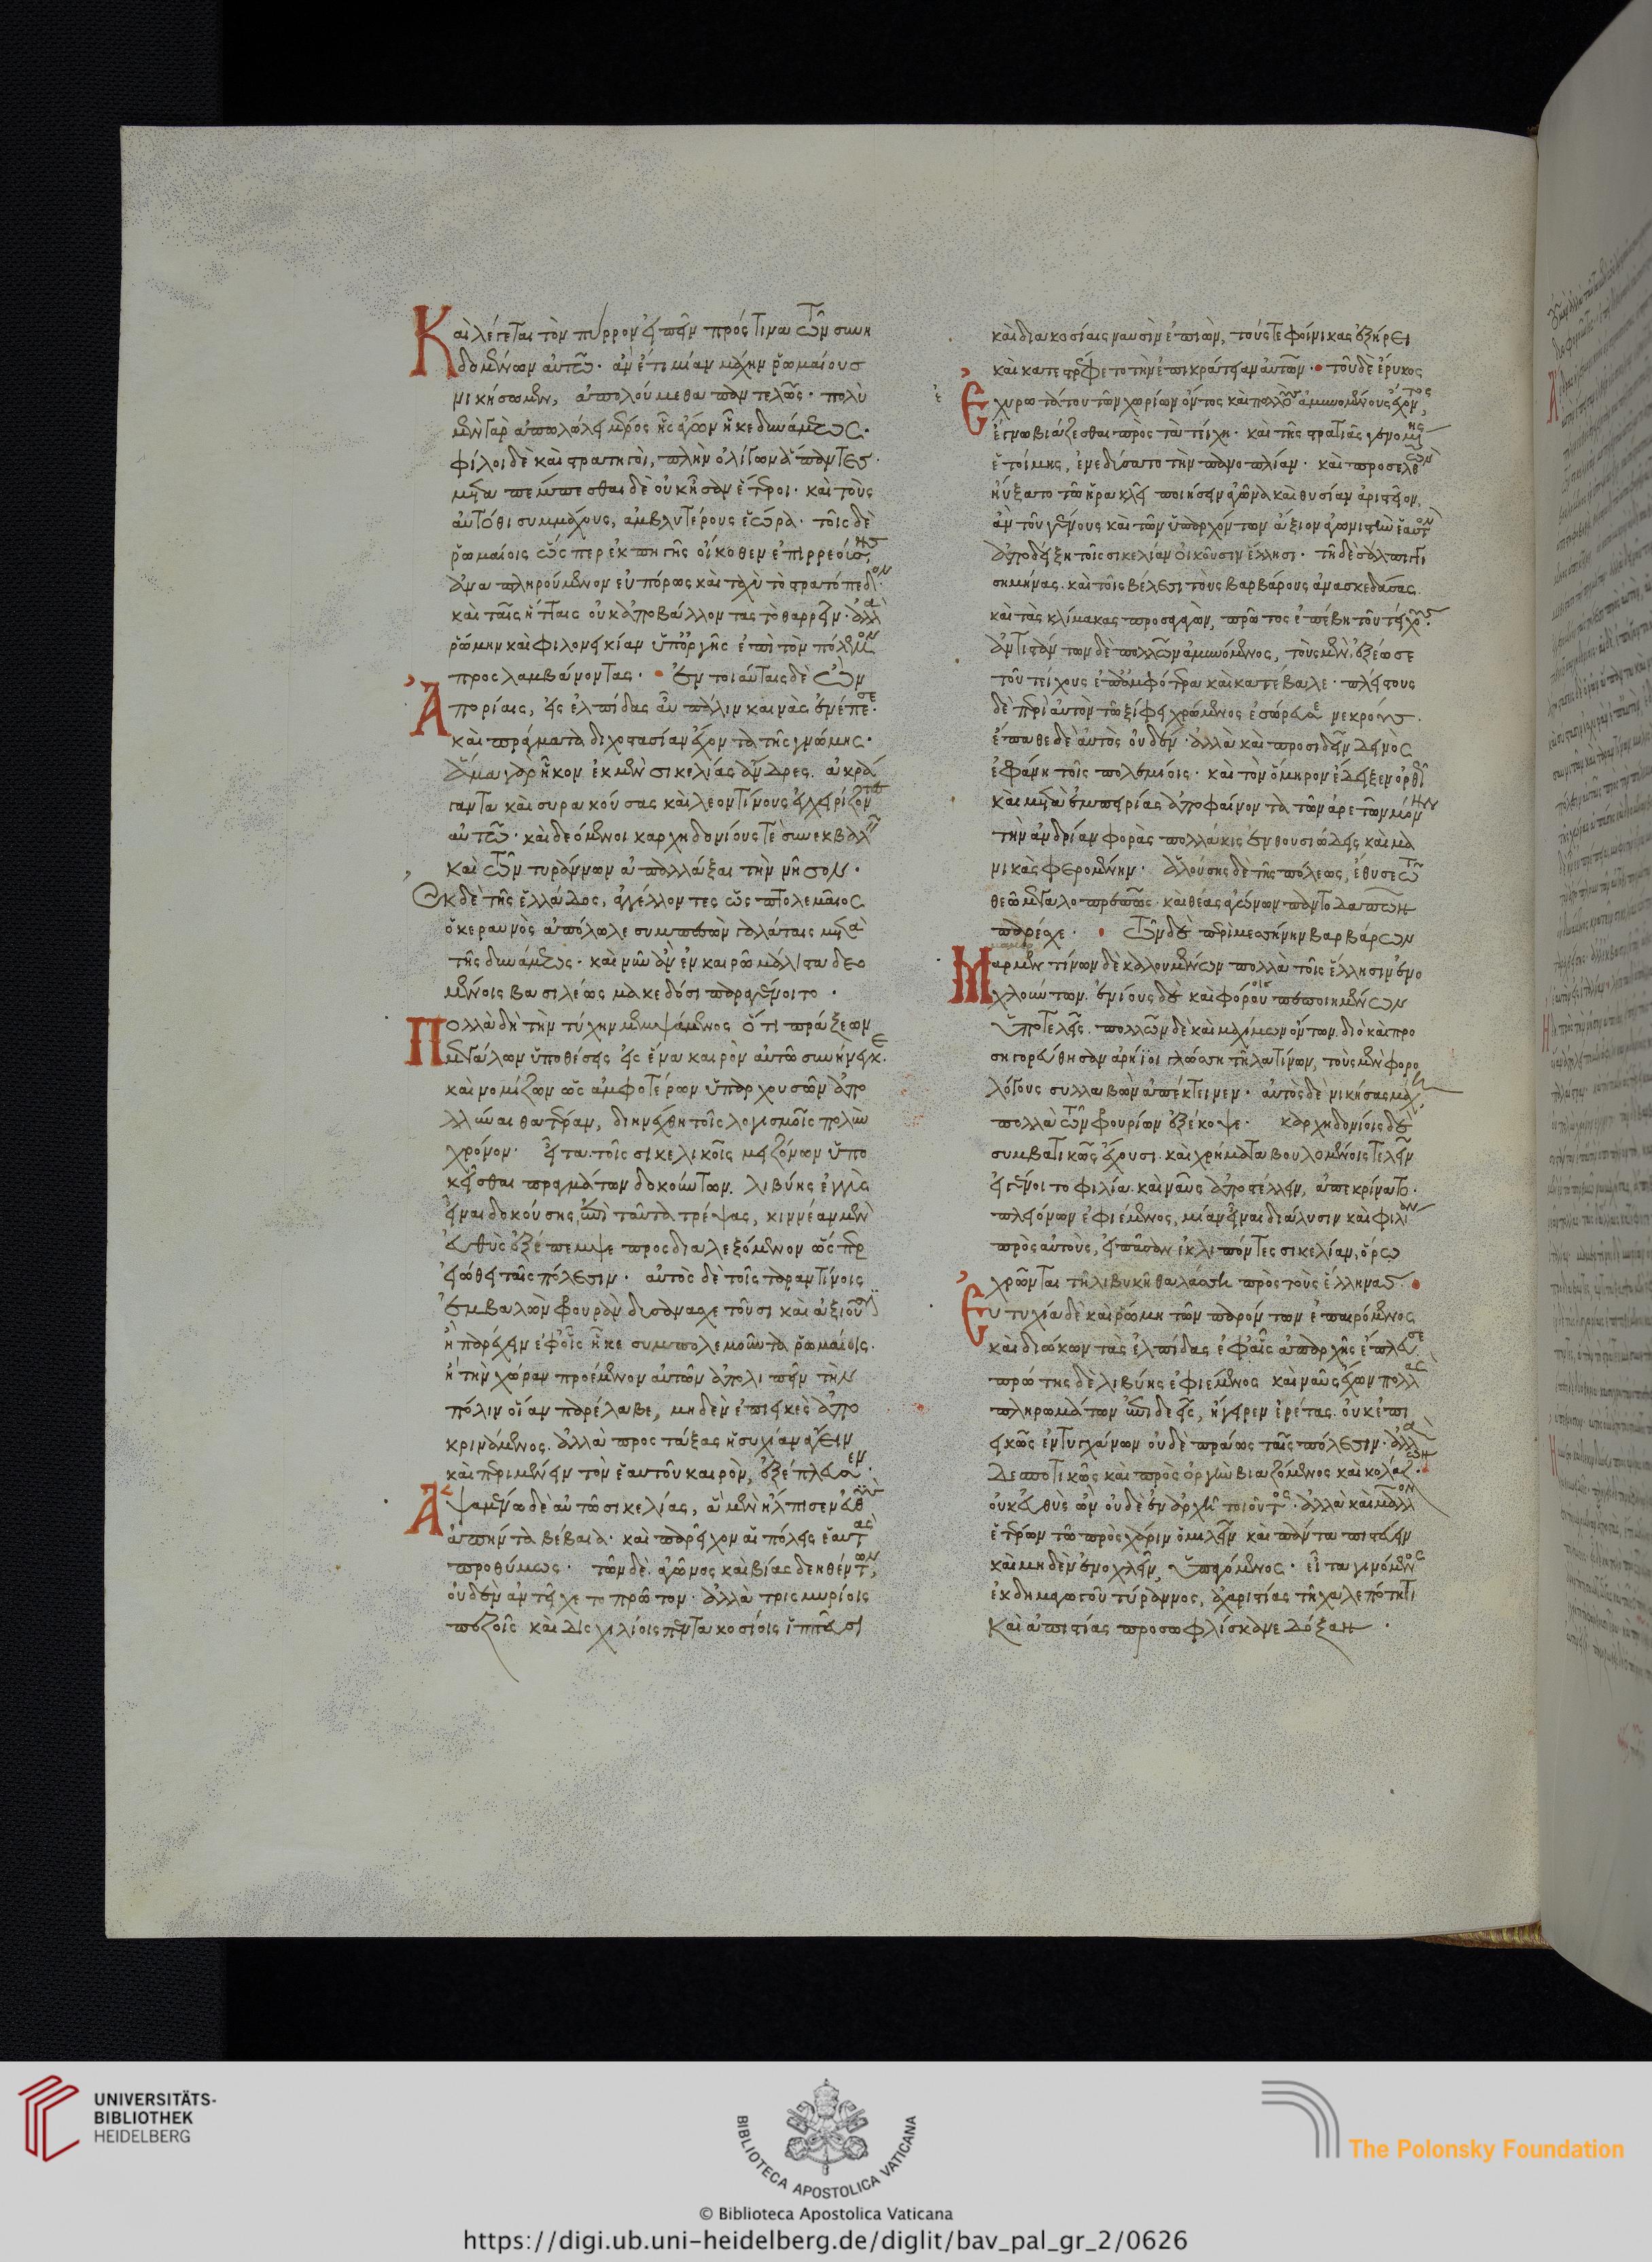 Καὶ λέγεται τὸν πύρρον εἰπεῖν πρός τινα τῶν συνη
δομένων αὐτῶ· ἂν ἔτι μίαν μάχην ῥωμαίους
νικήσωμεν, ἀπολούμεθα παντελῶς· πολὺ
μὲν γὰρ ἀπολώλει μέρος ἧς ἄγων ἧκε δυνάμεως·
φίλοι δὲ καὶ στρατηγοὶ, πλὴν ὀλίγων ἅπαντες·
μεταπέμπεσθαι δὲ οὐκ ἦσαν ἕτεροι· καὶ τοὺς
αὐτόθι συμμάχους, ἀμβλυτέρους ἑώρα· τοῖς δὲ
ῥωμαίοις ὥσπερ ἐκ πηγῆς οἴκοθεν ἐπιρρεούσης,
ἀναπληρούμενον εὐπόρως καὶ ταχὺ τὸ στρατόπεδον·
καὶ ταῖς ἥτταις οὐκ ἀποβάλλοντας τὸ θαρρεῖν· ἀλλὰ
ῥώμην καὶ φιλονεικίαν ὑπ' ὀργῆς ἐπὶ τὸν πόλεμον
προσλαμβάνοντας· ἐν τοιαύταις δὲ ὢν
Ἀπορίαις, εἰς ἐλπίδας αὖ πάλιν καινὰς ἐνέπεσε·
καὶ πράγματα διχοστασίαν ἔχοντα τῆς γνώμης·
ἅμα γὰρ ἧκον ἐκ μὲν σικελίας ἄνδρες ἀκρά
γαντα καὶ συρακούσας καὶ λεοντίνους ἐγχειρίζοντες
αὐτῶ· καὶ δεόμενοι καρχηδονίους τὲ συνεκβαλεῖν
καὶ τῶν τυράννων ἀπαλλάξαι τὴν νῆσον·
Ἐκ δὲ τῆς ἑλλάδος, ἀγγέλλοντες ὡς πτολεμαῖος
ὁ κεραυνὸς ἀπόλωλε συμπεσὼν γαλάταις μετὰ
τῆς δυνάμεως· καὶ νῦν ἂν ἐν καιρῶ μάλιστα δεο
μένοις βασιλέως μακεδόσι παραγένοιτο·
Πολλὰ δὴ τὴν τύχην μεμψάμενος ὅτι πράξεων
μεγάλων ὑποθέσεις εἰς ἕνα καιρὸν αὐτῶ συνήνεγκε·
καὶ νομίζων ὡς ἀμφοτέρων ὑπαρχουσῶν ἀπο
λλύναι θατέραν, διηνέχθη τοῖς λογισμοῖς πολὺν
χρόνον· εἶτα τοῖς σικελικοῖς μειζόνων ὑπο
κεῖσθαι πραγμάτων δοκούντων. λιβύης ἐγγὺς
εἶναι δοκούσης, ἐπὶ ταῦτα τρέψας, κιννέαν μὲν
εὐθὺς ἐξέπεμψε προδιαλεξόμενον ὥσπερ
εἰώθει ταῖς πόλεσιν· αὐτὸς δὲ τοῖς ταραντίνοις
ἐμβαλὼν φουρὰν δυσανασχετοῦσι καὶ ἀξιοῦσιν
ἢ παρέχειν ἐφ' οἷς ἧκε συμπολεμοῦντα ῥωμαίοις·
ἢ τὴν χώραν προέμενον αὐτῶν ἀπολιπεῖν τὴν
πόλιν οἵαν παρέλαβε, μηδὲν ἐπιεικὲς ἀπο
κρινάμενος. ἀλλὰ προστάξας ἡσυχίαν ἄγειν
καὶ περιμένειν τὸν ἑαυτοῦ καιρὸν, ἐξέπλευσεν·
Ἁψαμένω δὲ αὐτῶ σικελίας, ἃ μὲν ἤλπισεν εὐθὺς
ἀπήντα βέβαια· καὶ παρεῖχον αἱ πόλεις ἑαυτὰς
προθύμως· τῶν δὲ ἀγῶνος καὶ βίας δεηθέντων,
οὐδὲν ἀντεῖχε τοπρῶτον· ἀλλὰ τρισμυρίοις
πεζοῖς καὶ δισχιλίοις πεντακοσίοις ἱππεῦσι
καὶ διακοσίαις ναυσὶν ἐπιὼν, τούς τε φοίνικας ἐξήρει
καὶ κατεστρέφετο τὴν ἐπικράτειαν αὐτῶν· τοῦ δὲ ἔρυκος
Ἐχυρωτάτου τῶν χωρίων ὄντος καὶ πολλοὺς ἀμυνομένους ἔχοντος,
ἔγνω βιάζεσθαι πρὸς τὰ τείχη· καὶ τῆς στρατιᾶς γενομένης
ἑτοίμης, ἐνεδύσατο τὴν πανοπλίαν· καὶ προσελθὼν
ηὔξατο τῶ ἡρακλεῖ ποιήσειν ἀγῶνα καὶ θυσίαν ἀριστεῖον,
ἂν τοῦ γένους καὶ τῶν ὑπαρχόντων ἄξιον ἀγωνιστὴν ἑαυτὸν
ἀποδείξη τοῖς σικελίαν οἰκοῦσιν ἕλλησι· τῆ δὲ σάλπιγγι
σημήνας· καὶ τοῖς βέλεσι τοὺς βαρβάρους ἀνασκεδάσας·
καὶ τὰς κλίμακας προσαγαγὼν, πρῶτος ἐπέβη τοῦ τείχους·
ἀντιστάντων δὲ πολλῶν ἀμυνόμενος, τοὺς μὲν ἐξέωσε
τοῦ τείχους ἐπ' ἀμφότερα καὶ κατέβαλε· πλείστους
δὲ περὶ αὐτὸν τῶ ξίφει χρώμενος ἐσώρευσε νεκρούς·
ἔπαθε δὲ αὐτὸς οὐδὲν· ἀλλὰ καὶ προσιδεῖν δεινὸς
ἐφάνη τοῖς πολεμίοις· καὶ τὸν ὅμηρον ἔδειξεν ὀρθῶς
καὶ μετὰ ἐμπειρίας ἀποφαίνοντα τῶν ἀρετῶν μόνην
τὴν ἀνδρίαν φορὰς πολλάκις ἐνθουσιώδεις καὶ μα
νικὰς φερομένην· ἁλούσης δὲ τῆς πόλεως, ἔθυσε τῶ
θεῶ μεγαλοπρεπῶς· καὶ θέας ἀγώνων παντοδαπῶν
παρέσχε· τῶν δὲ περὶ μεσήνην βαρβάρων
Μαμερτίνων δὲ καλουμένων πολλὰ τοῖς ἕλλησιν ἐνο
χλούντων· ἐνίους δὲ καὶ φόρου πεποιημένων
ὑποτελεῖς. πολλῶν δὲ καὶ μαχίμων ὄντων. διὸ καὶ προ
σηγορεύθησαν ἀρήϊοι γλώσση τῆ λατίνων, τοὺς μὲν φορο
λόγους συλλαβὼν ἀπέκτεινεν· αὐτοὺς δὲ νικήσας μάχη,
πολλὰ τῶν φρουρίων ἐξέκοψε· καρχηδονίοις δὲ
συμβατικῶς ἔχουσι· καὶ χρήματα βουλομένοις τελεῖν
εἰ γένοιτο φιλία· καὶ ναῦς ἀποστέλλειν, ἀπεκρίνατο·
πλειόνων ἐφιέμενος, μίαν εἶναι διάλυσιν καὶ φιλίαν
πρὸς αὐτοὺς, εἰ πᾶσαν ἐκλιπόντες σικελίαν, ὅρω
χρῶνται τῆ λιβυκῆ θαλάσση πρὸς τοὺς ἕλληνας·
Εὐτυχία δὲ καὶ ῥώμη τῶν παρόντων ἐπαιρόμενος
καὶ διώκων τὰς ἐλπίδας ἐφ' αἷς ἀπ' ἀρχῆς ἔπλευσε
πρώτης δὲ λιβύης ἐφιέμενος καὶ ναῦς ἔχων πολλὰς
πληρωμάτων ἐπιδεεῖς, ἤγειρεν ἐρέτας· οὐκ ἐπι
εικῶς ἐντυγχάνων οὐδὲ πράως ταῖς πόλεσιν· ἀλλὰ
δεσποτικῶς καὶ πρὸς ὀργὴν βιαζόμενος καὶ κολάζων·
οὐκ εὐθὺς ὢν οὐδὲ ἐν ἀρχῆ τοιοῦτος· ἀλλὰ καὶ μᾶλλον
ἑτέρων τῶ πρὸς χάριν ὁμιλεῖν καὶ πάντα πιστεύειν
καὶ μηδὲν ἐνοχλεῖν, ὑπαγόμενος· εἶτα γινόμενος
ἐκ δημαγωγοῦ τύραννος, ἀχαριστίας τῆ χαλεπότητι
καὶ ἀπιστίας προσωφλίσκανε δόξαν·
UNIVERSITÄTS-
BIBLIOTHEK
HEIDELBERG
BIBLIOTECA APOSTOLICA VATICANA
The Polonsky Foundation
© Biblioteca Apostolica Vaticana
https://digi.ub.uni-heidelberg.de/diglit/bav_pal_gr_2/0626